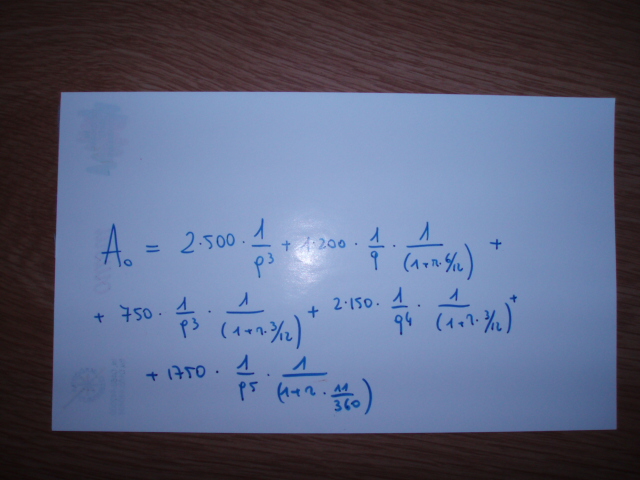 A₀ = 2·500 · 1/q³ + 1·200 · 1/q · 1/(1+r·6/12) +
+ 750 · 1/q³ · 1/(1+r·3/12) + 2·150 · 1/q⁴ · 1/(1+r·3/12) +
+ 1750 · 1/q⁵ · 1/(1+r·11/360)